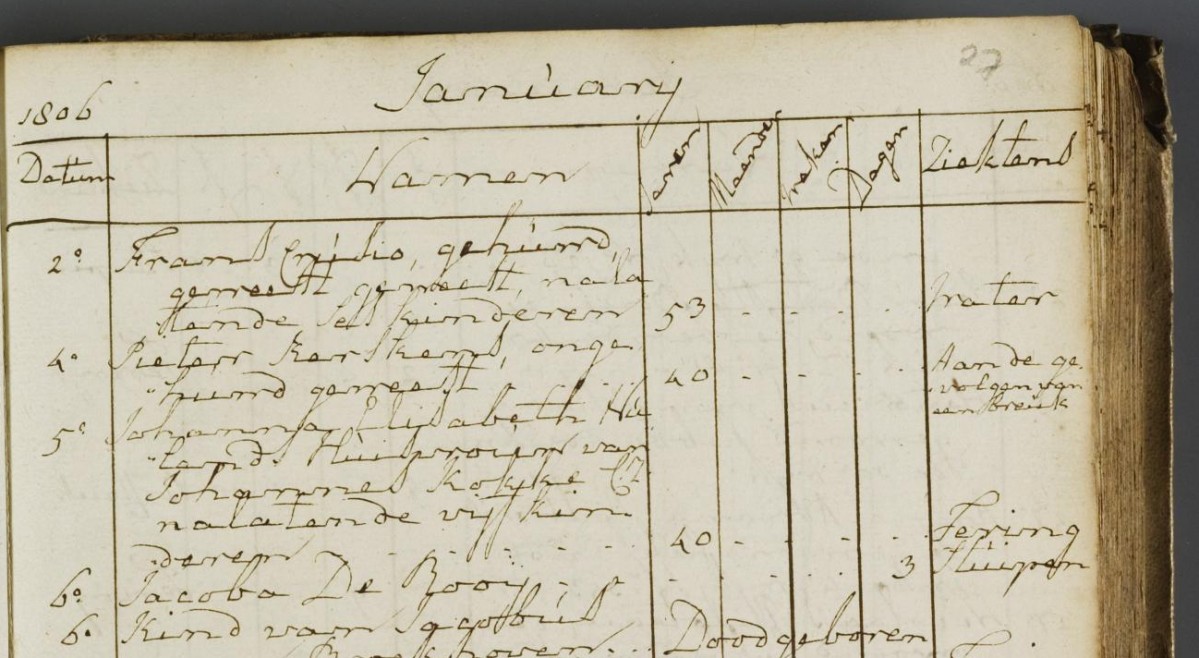 27
Januarij
1806
Datum Namen Jaren Maanden weken Dagen Ziektens
2º Frans gehuwd
geweest geweest, nala
tende kinderen 53 Water
4º Pieter Kerskens, onge
huwd geweest 40 Aan de ge
volgen van
een breuk
5º Johanna Elisabeth Hu
lands Huisvrouw van
Johannes Kokke Cz
nalatende vijf kin
deren 40 Tering
6º Jacoba De Rooy 3 Stuipen
6º Kind van Jacobus
Doodgeboren